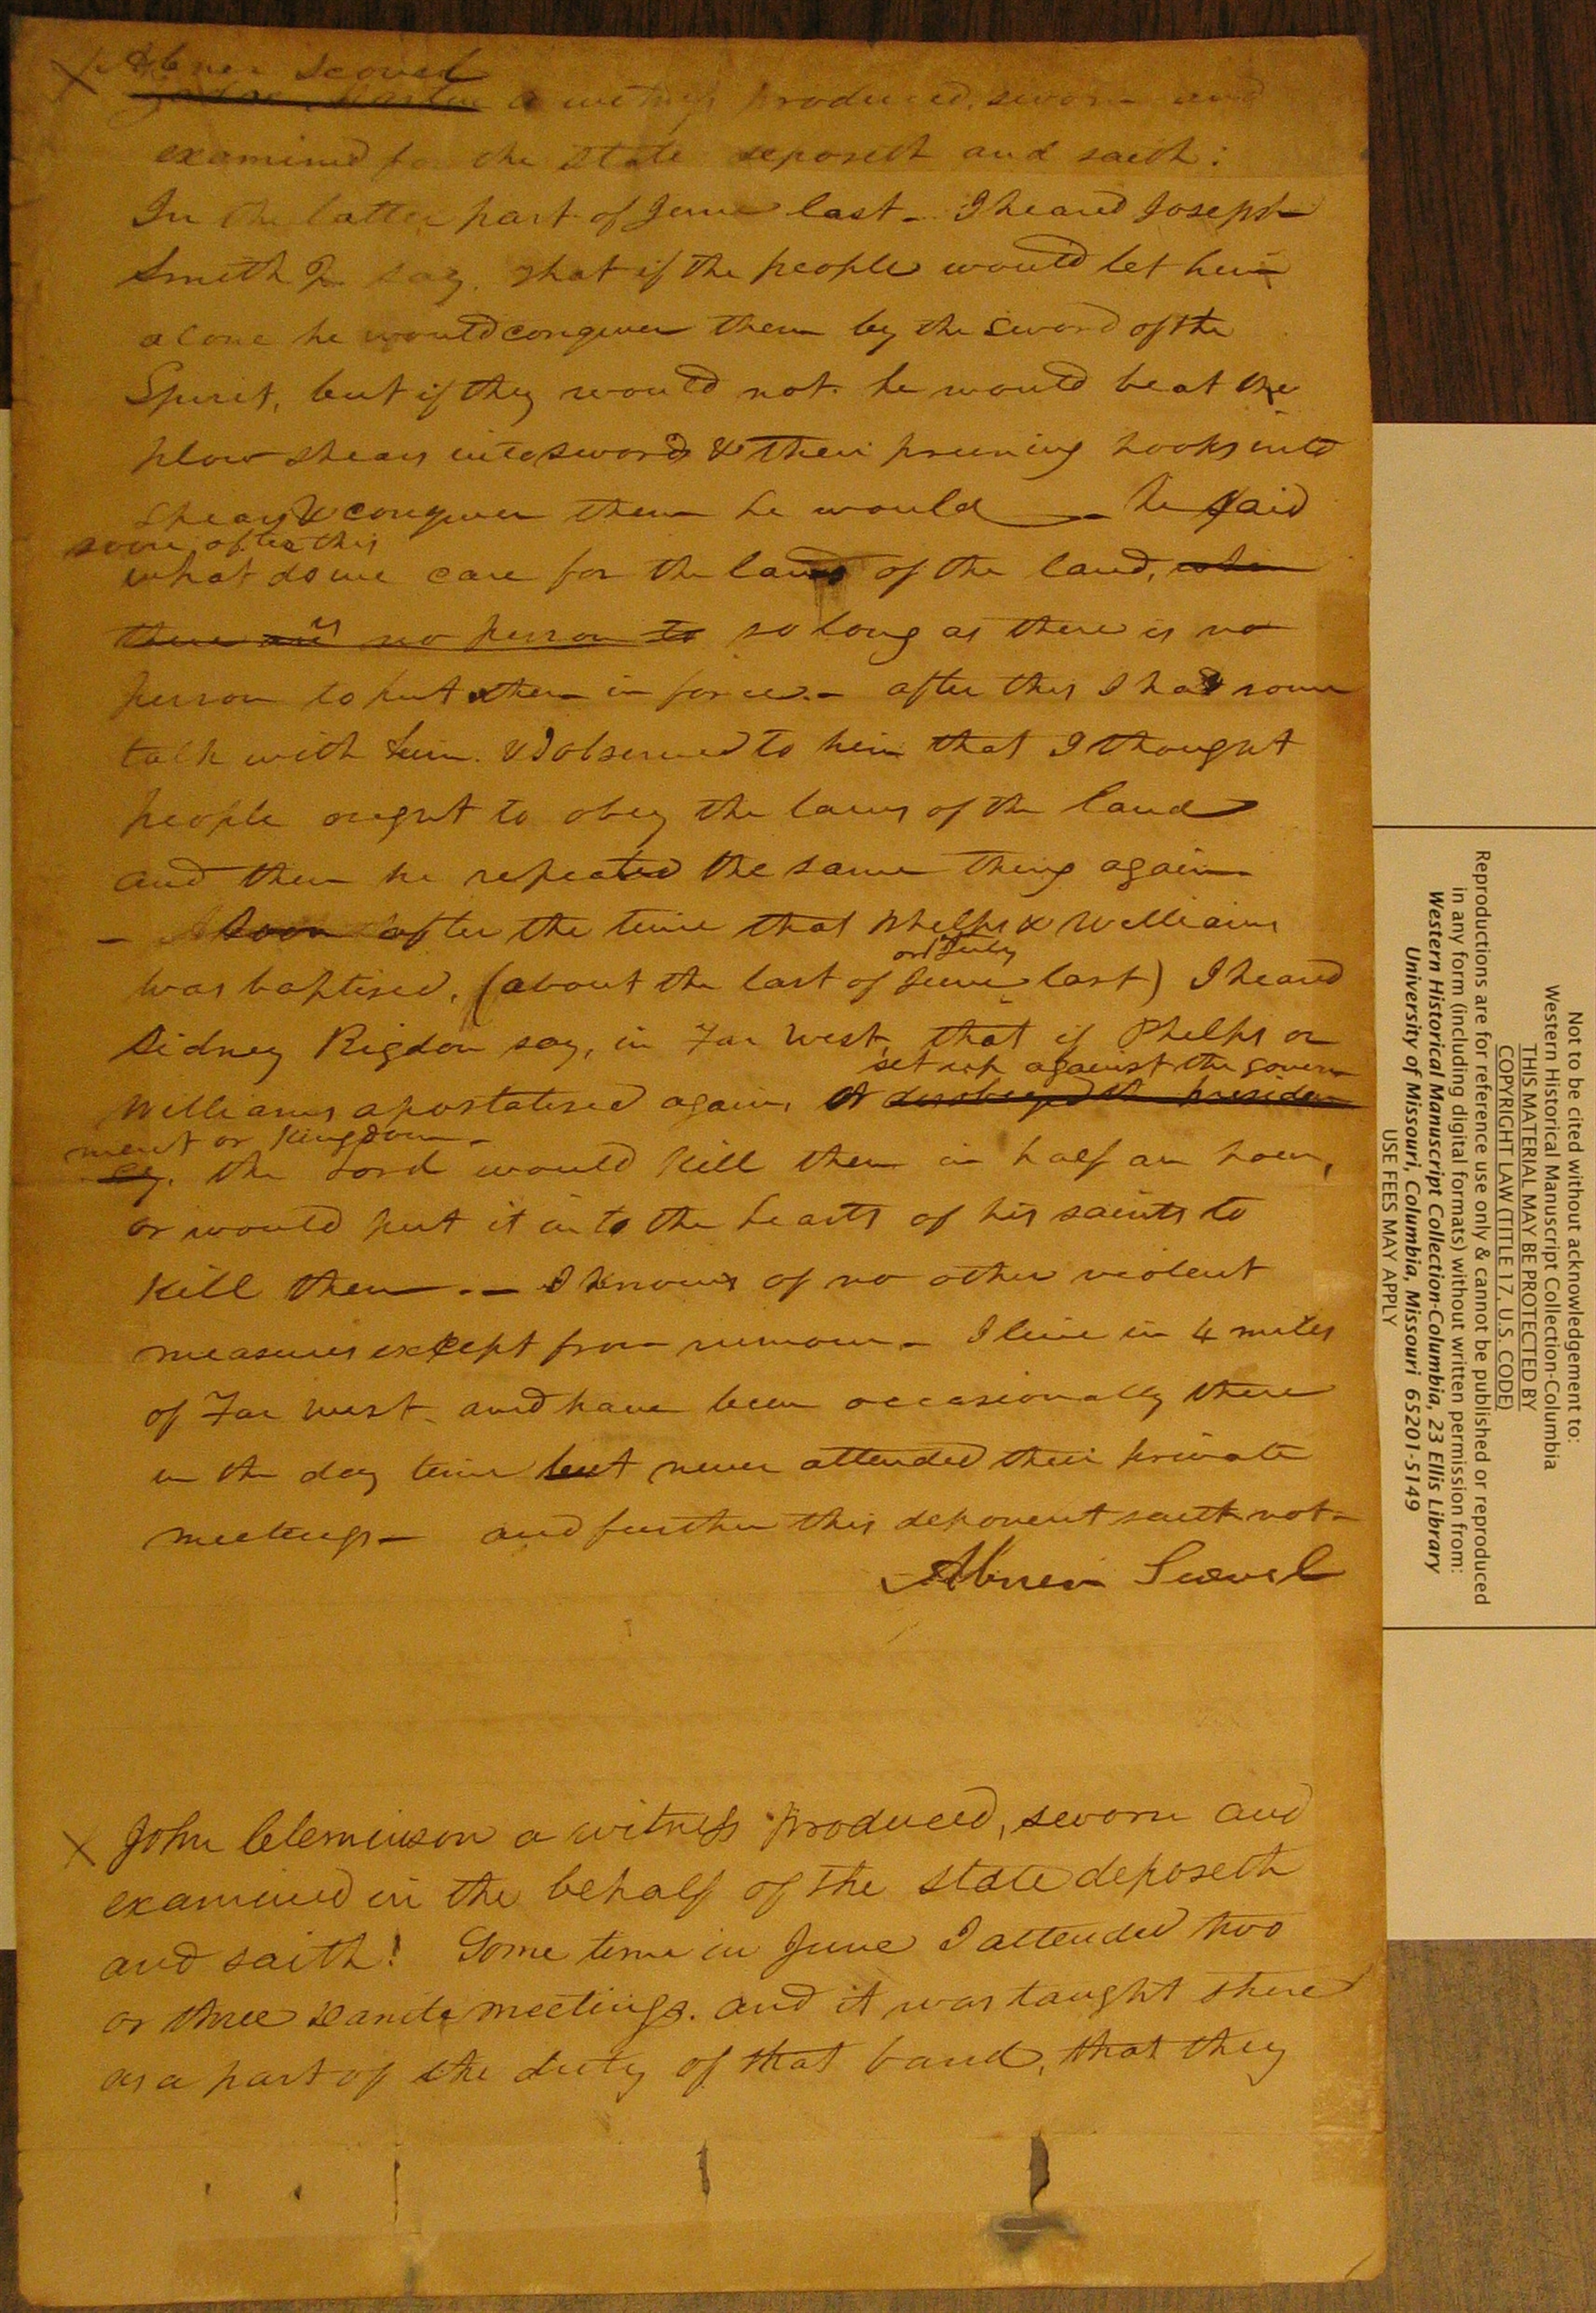 X Abner Scovel
a witness produced, sworn and
examined for the State deposeth and saith:
In the latter part of June last - I heard Joseph
Smith Jr say, that if the people would let him
alone he would conquer them by the sword of the
Spirit, but if they would not he would beat the
plow shears into swords & their pruning hooks into
spears & conquer them he would - he said
soon after this
what do we care for the laws of the land, when
there is no person to so long as there is no
person to put them in force. - after this I had some
talk with him. & I observed to him that I thought
people ought to obey the laws of the land
and then he repeated the same thing again
- Soon after the time that Phelps & Williams
or July
was baptised, (about the last of June last) I heard
Sidney Rigdon say, in Far West, that if Phelps or
set up against the govern
Williams apostatised again, or disobeyed the presiden
ment or Kingdom -
cy. the Lord would kill them in half an hour,
or would put it into the hearts of his saints to
kill them. - I know of no other violent
measures except from rumour - I live in 4 miles
of Far West, and have been occasionally there
in the day time but never attended their private
meetings - and further this deponent saith not -
Abner Scovel
X John Cleminson a witness produced, sworn and
examined in the behalf of the state deposeth
and saith! Some time in June I attended two
or three Danite meetings. and it was taught there
as a part of the duty of that band, that they
Not to be cited without acknowledgement to:
Western Historical Manuscript Collection-Columbia
THIS MATERIAL MAY BE PROTECTED BY
COPYRIGHT LAW (TITLE 17, U.S. CODE)
Reproductions are for reference use only & cannot be published or reproduced
in any form (including digital formats) without written permission from:
Western Historical Manuscript Collection-Columbia, 23 Ellis Library
University of Missouri, Columbia, Missouri 65201-5149
USE FEES MAY APPLY